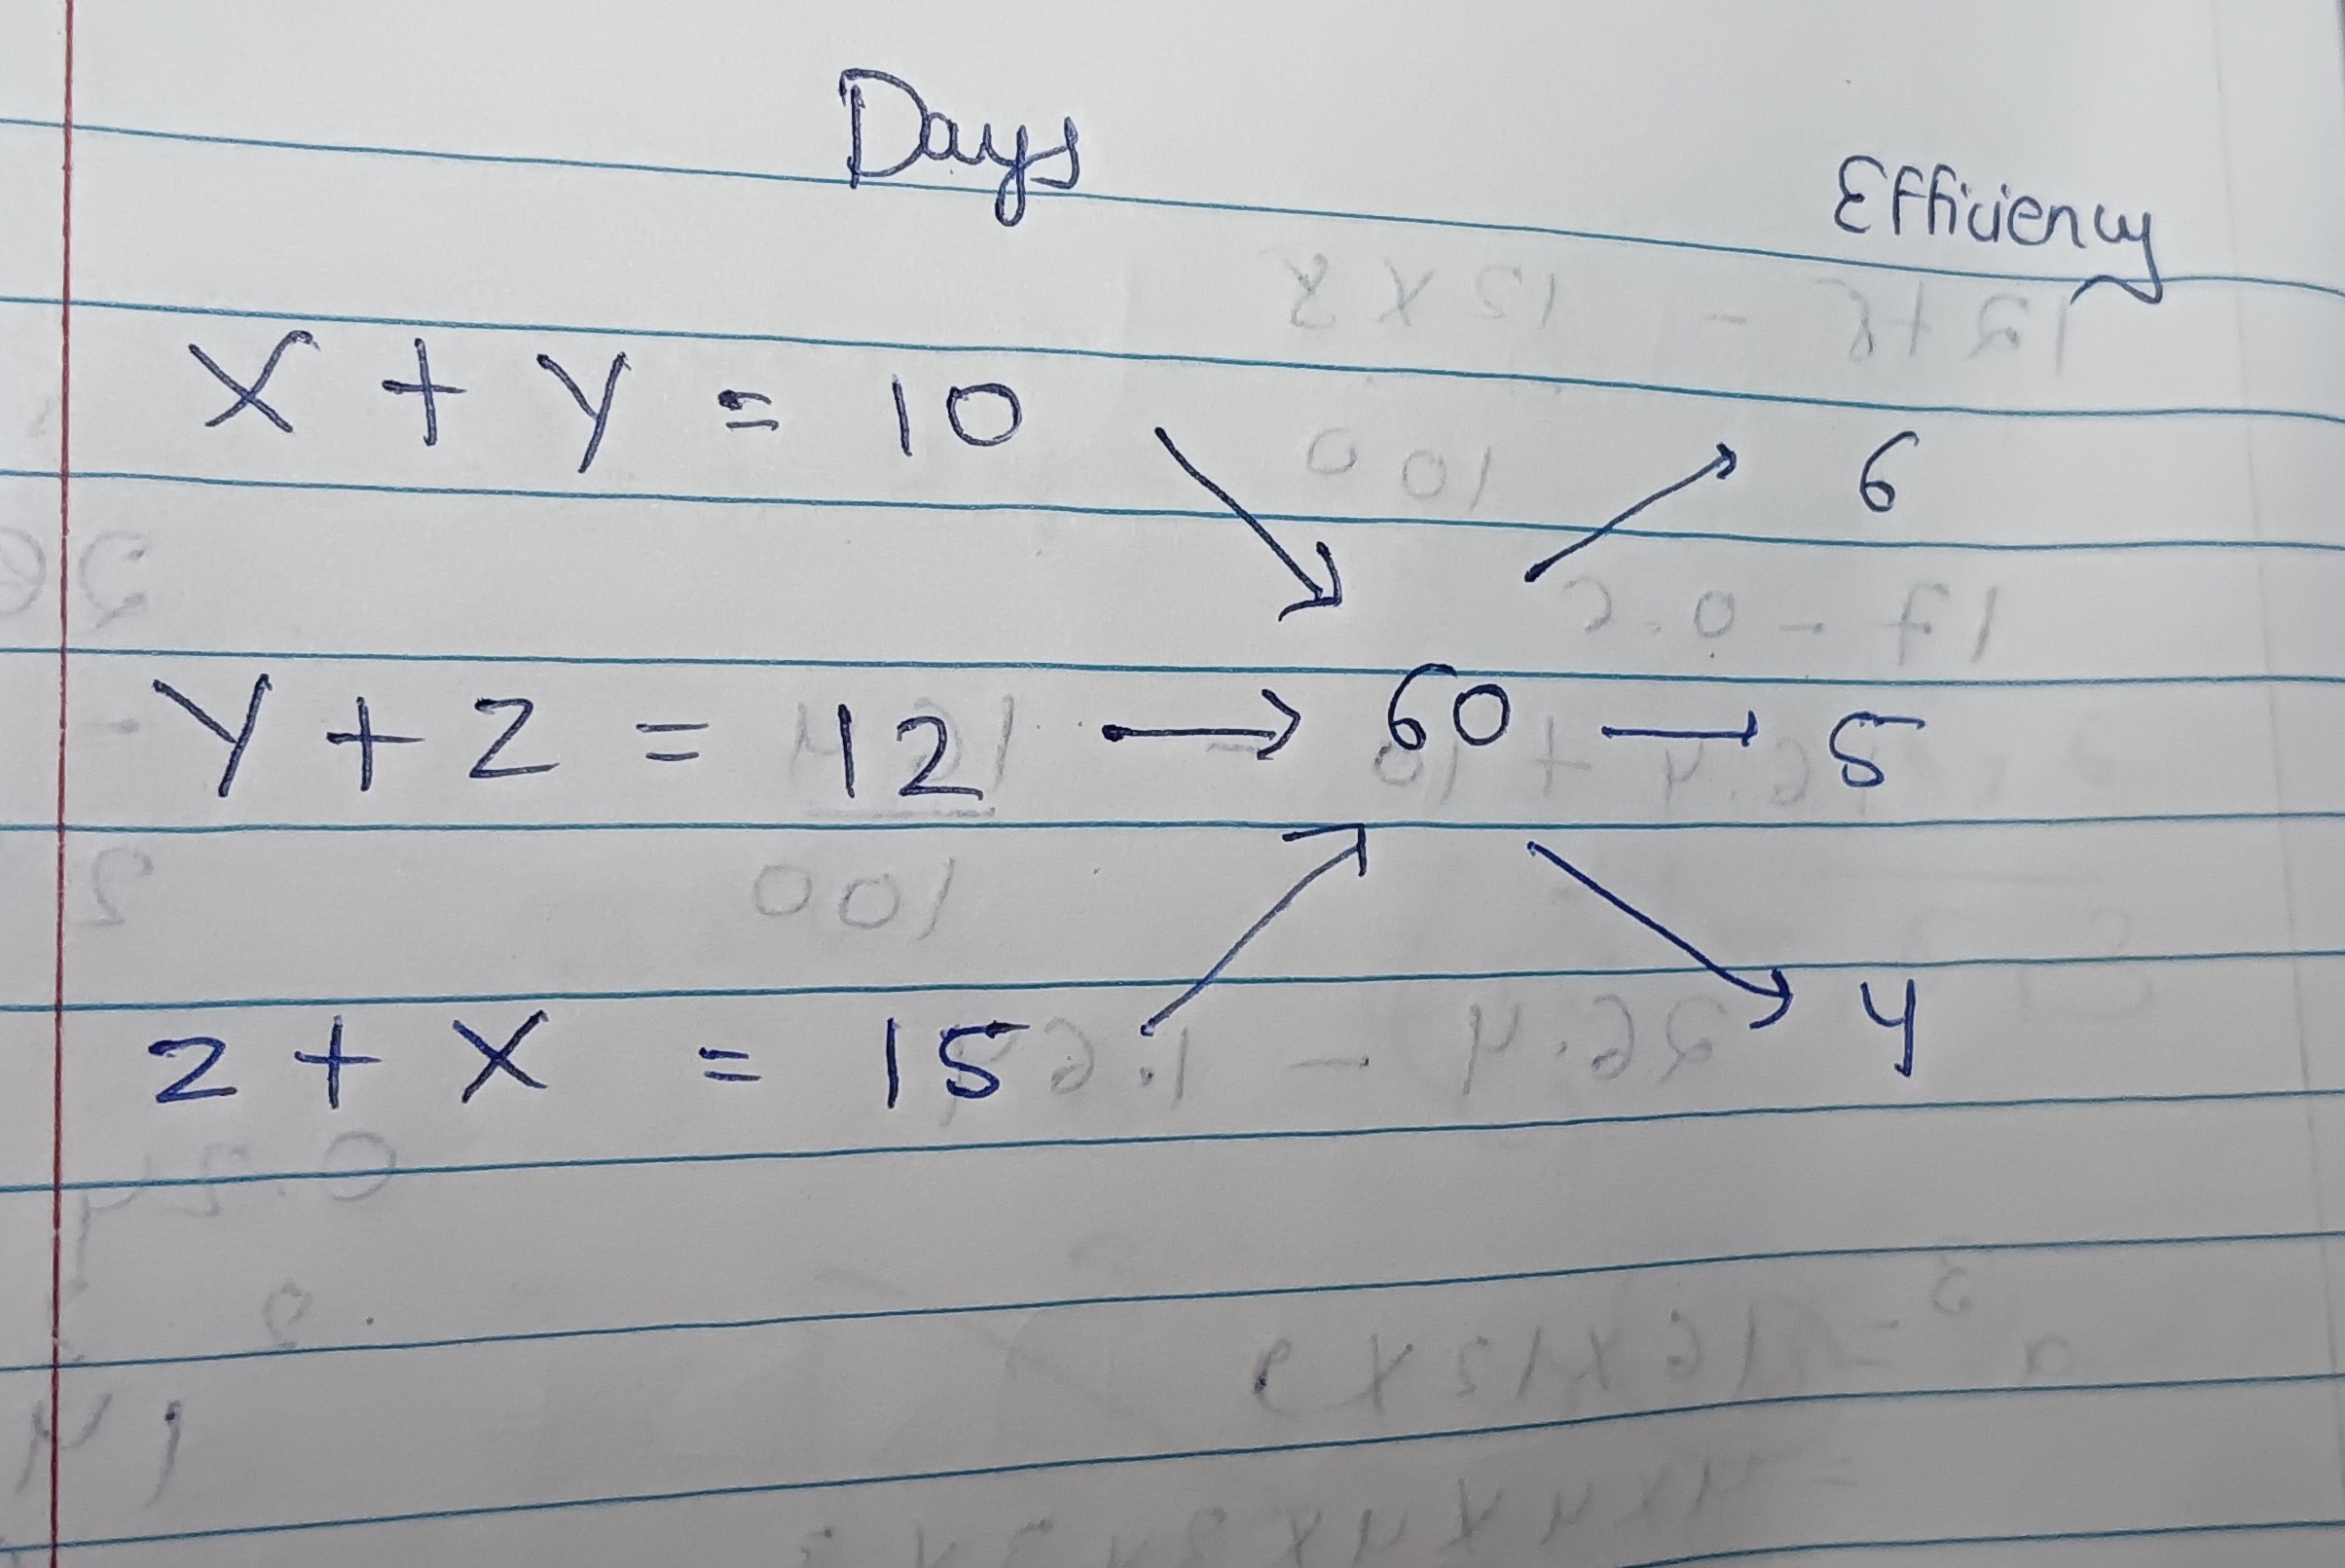 Days Efficiency
X + Y = 10 6
Y + Z = 12 → 60 → 5
Z + X = 15 4